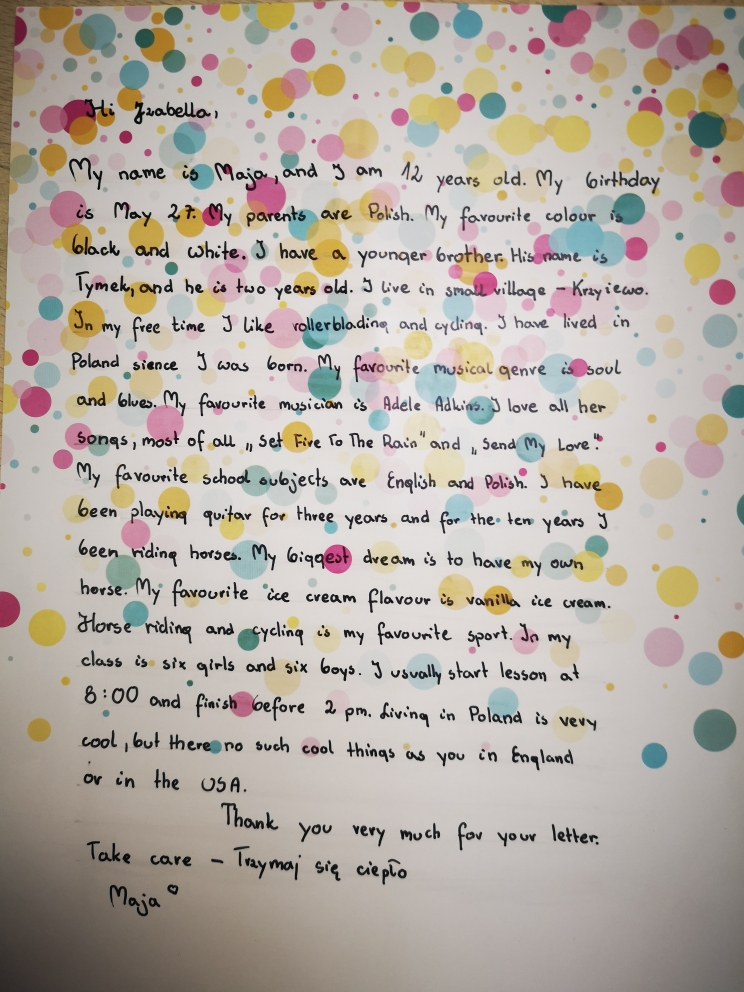 Hi Izabella,
My name is Maja, and I am 12 years old. My birthday
is May 27. My parents are Polish. My favourite colour is
black and white. I have a younger brother. His name is
Tymek, and he is two years old. I live in small village – Krzyiewo.
In my free time I like rollerblading and cycling. I have lived in
Poland sience I was born. My favourite musical genre is soul
and blues. My favourite musician is Adele Adkins. I love all her
songs, most of all „Set Fire To The Rain" and „Send My Love".
My favourite school subjects are English and Polish. I have
been playing guitar for three years and for the ten years I
been riding horses. My biggest dream is to have my own
horse. My favourite ice cream flavour is vanilla ice cream.
Horse riding and cycling is my favourite sport. In my
class is six girls and six boys. I usually start lesson at
8:00 and finish before 2 pm. Living in Poland is very
cool, but there no such cool things as you in England
or in the USA.
Thank you very much for your letter.
Take care – Trzymaj się ciepło
Maja ♡